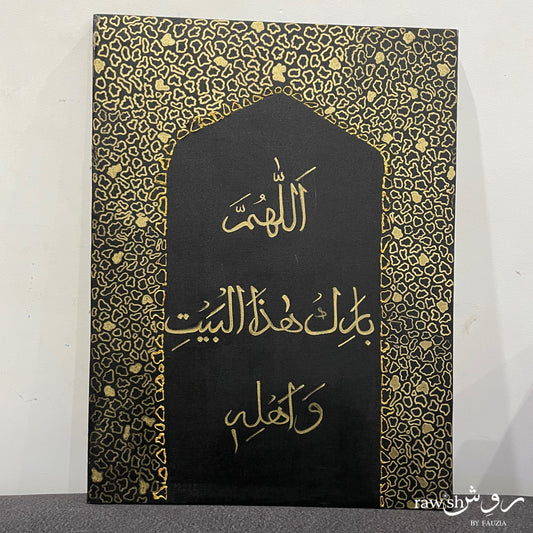 اَللّٰهُمَّ
بَارِكْ هٰذَا الْبَيْتِ
وَاَهْلِهٖ
raw.sh روش
BY FAUZIA